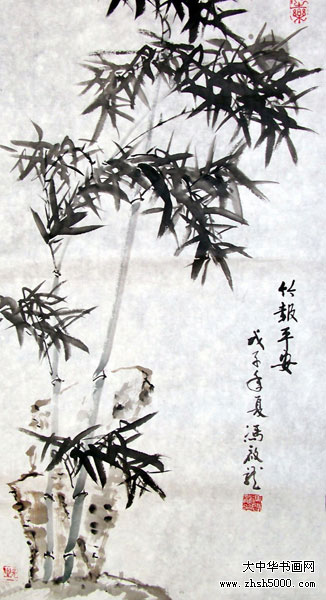 竹報平安
戊子年夏馮
大中华书画网
www.zhsh5000.com